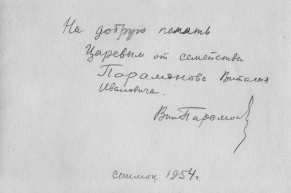 На добрую память
Царевым от семейства
Парамонова Виталия
Ивановича.
ВипПарамон
снимок 1954 г.